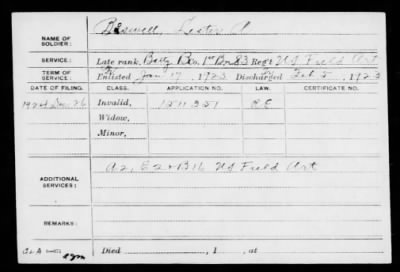 NAME OF SOLDIER: Braswell, Lester A
SERVICE: Late rank, Batty B Co. 1st Bn 83 Reg't US Field Art
TERM OF SERVICE: Enlisted Jan 17, 1923 Discharged Feb 5, 1923
DATE OF FILING. CLASS. APPLICATION NO. LAW. CERTIFICATE NO.
1924 26 Invalid, 1511351
Widow,
Minor,
ADDITIONAL SERVICES: A2, E2 + B16 US Field Art
REMARKS:
Died , 1 , at